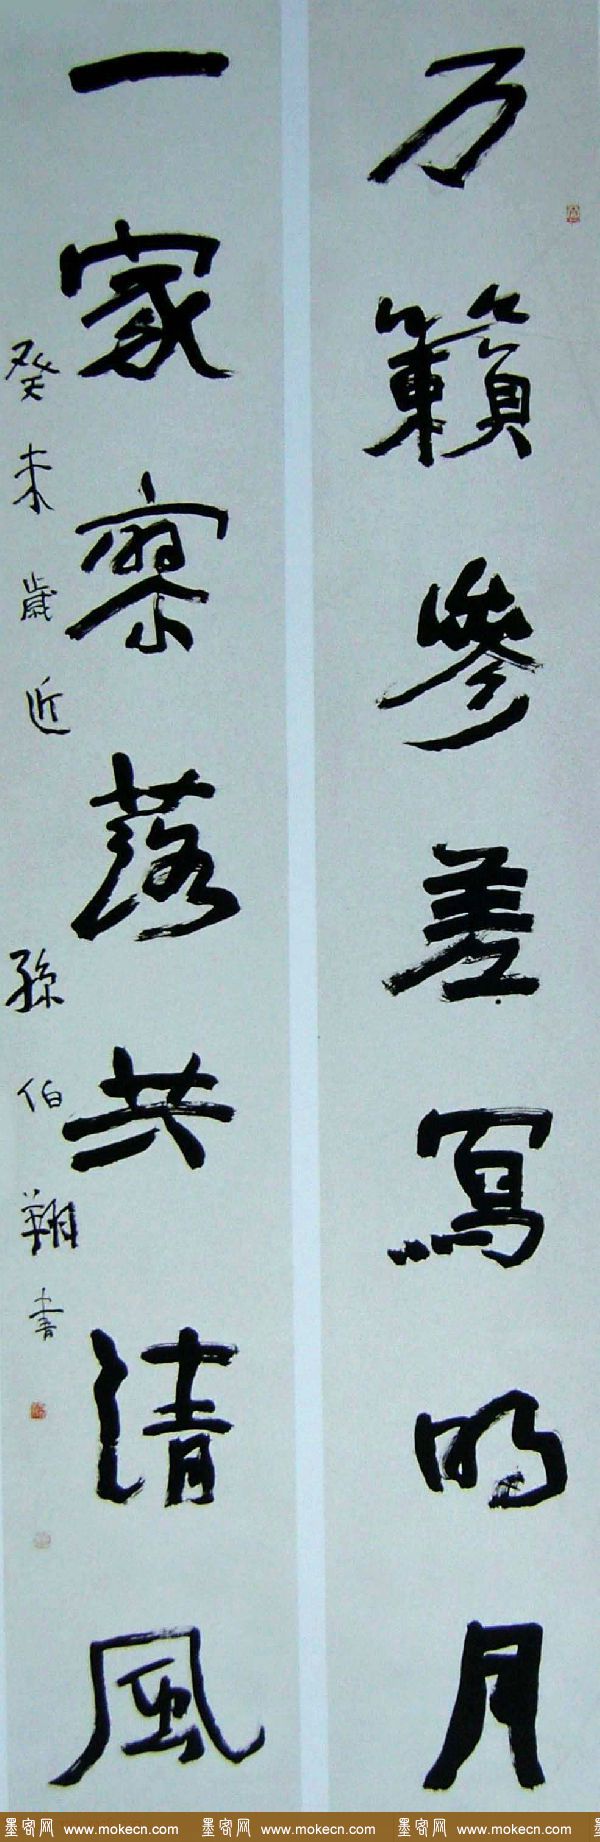 万籁參差寫明月
一家寥落共清風
癸未歲近 孫伯翔書
墨客网 www.mokecn.com 墨客网 www.mokecn.com 墨客网 www.mokecn.com